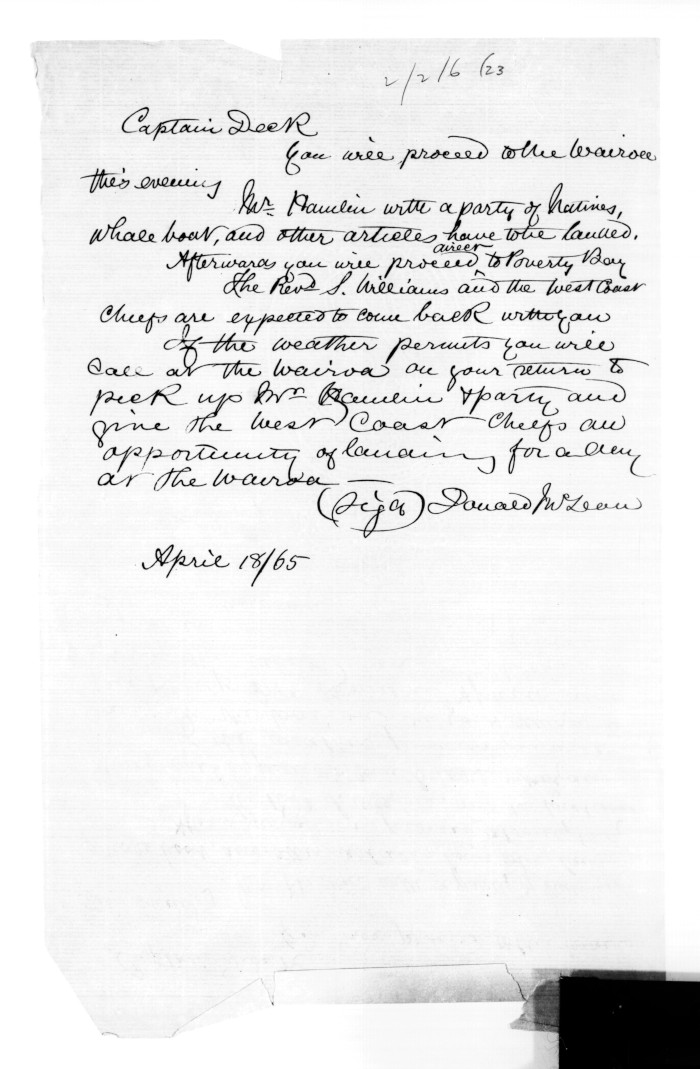 2/2/6 /23
Captain Deck
You will proceed to the Wairoa
this evening
Mr. Hamlin with a party of Natives,
whale boat, and other articles have to be landed.
Afterwards you will proceed direct to Poverty Bay
The Revd S. Williams and the West Coast
Chiefs are expected to come back with you
If the weather permits you will
call at the Wairoa on your return to
pick up Mr Hamlin & party and
give the West Coast Chiefs an
opportunity of landing for a day
at the Wairoa —
(Sigd) Donald McLean
April 18/65